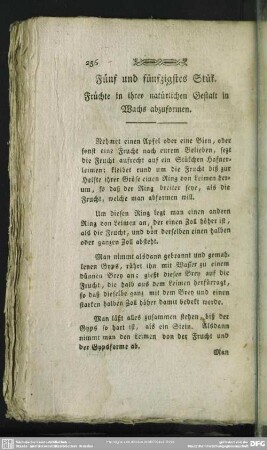 256
Fünf und fünfzigstes Stük.
Früchte in ihrer natürlichen Gestalt in
Wachs abzuformen.
Nehmet einen Apfel oder eine Bien, oder
sonst eine Frucht nach eurem Belieben, sezt
die Frucht aufrecht auf ein Stükchen Hafner-
leimen: kleibet rund um die Frucht biß zur
Hälfte ihrer Gröse einen Ring von Leimen her-
um, so daß der Ring breiter seye, als die
Frucht, welche man abformen will.
Um diesen Ring legt man einen andern
Ring von Leimen an, der einen Zoll höher ist,
als die Frucht, und von derselben einen hal-
ben oder ganzen Zoll absteht.
Man nimmt alsdann gebrannt und gemah-
lenen Gyps, rührt ihn mit Wasser zu einem
dünnen Brey an: gießt diesen Brey auf die
Frucht, die halb aus dem Leimen herfürragt,
so daß dieselbe ganz mit dem Brey und einen
starken halben Zoll höher damit bedekt werde.
Man läßt alles zusammen stehen, biß der
Gyps so hart ist, als ein Stein. Alsdann
nimmt man den Leimen von der Frucht und
der Gypsforme ab.
Man